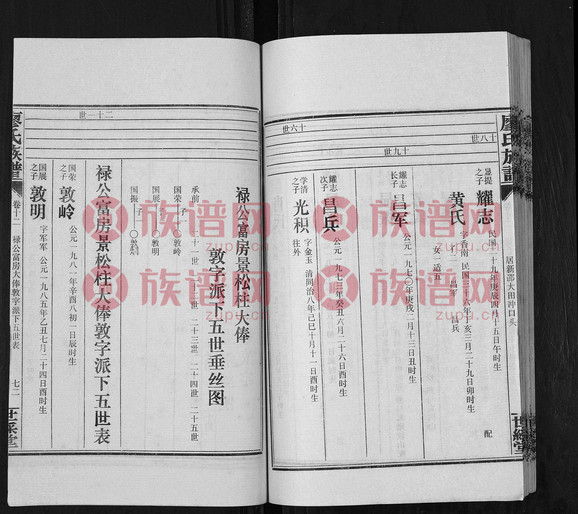 廖氏族谱
居新邵大田冲口头
十八世
显提之子
耀志
民国十九年庚辰四月十五日午时生
配
黄氏
字香南
民国三十六年亥三月二十九日卯时生
子二
昌军
昌兵
女一适五
十九世
耀志长子
昌军
公元一九七〇年庚戌二月十三日丑时生
耀志次子
昌兵
公元一九七三年癸丑六月二十六日酉时生
十六世
学清之子
光积
字金玉
清同治八年己巳十月十一日酉时生
往外
禄公富房景松柱大俸
敦字派下五世垂丝图
二十一世
二十二世
二十三世
二十四世
二十五世
承前
国荣
子一
〇敦岭
国展
子一
〇敦明
国振
子一
禄公富房景松柱大俸敦字派下五世表
二十一世
国荣之子
敦岭
公元一九八一年辛酉八月初一日辰时生
国展之子
敦明
字军军
公元一九八五年乙丑七月二十四日酉时生
廖氏族谱
卷十二
禄公富房大俸敦字派下五世表
七二
世彩堂
族谱网
zupu.cn